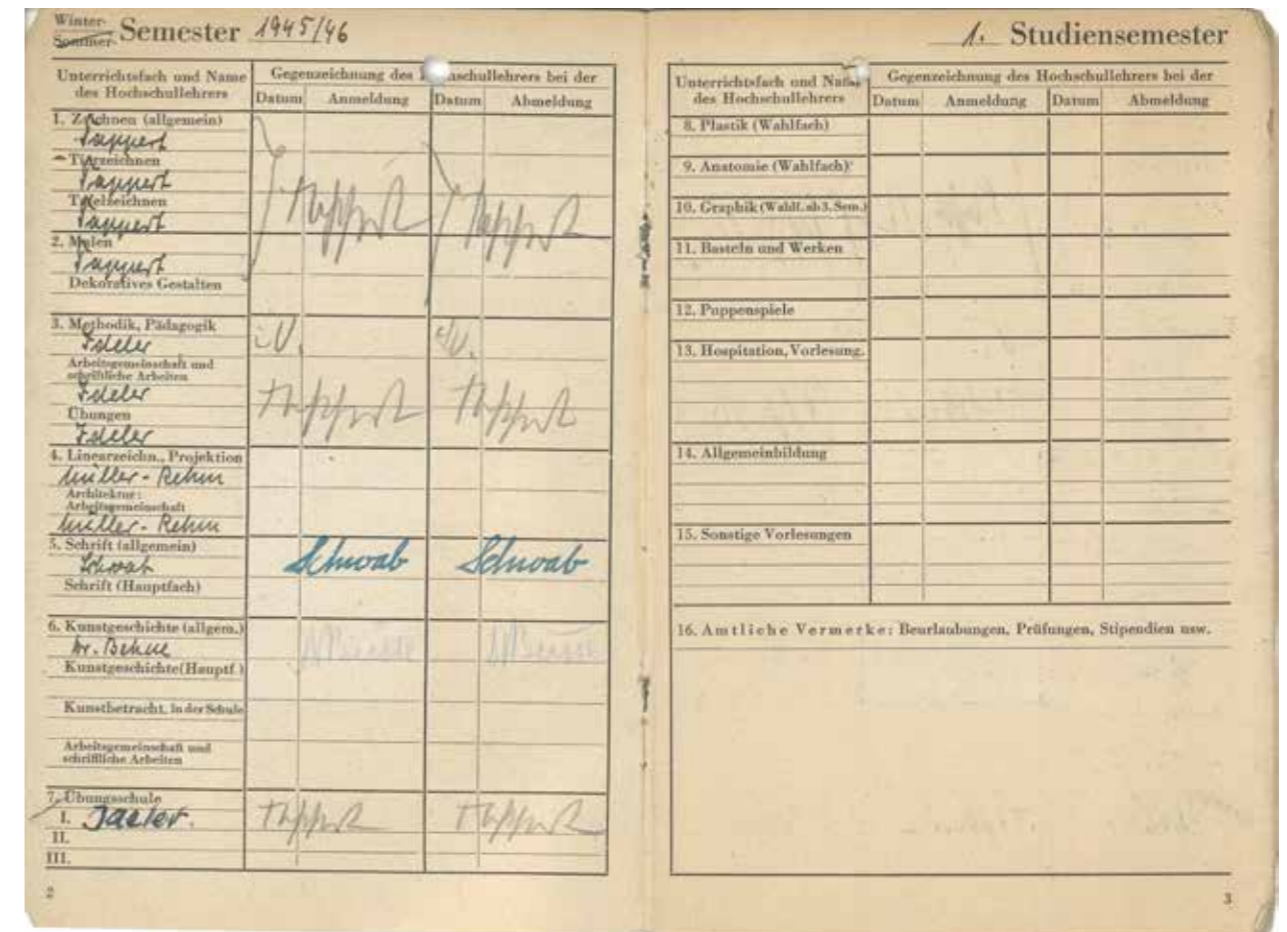 Winter-
Sommer- Semester 1945/46
Unterrichtsfach und Name
des Hochschullehrers
Gegenzeichnung des Hochschullehrers bei der
Datum Anmeldung Datum Abmeldung
1. Zeichnen (allgemein)
Tappert
Tierzeichnen
Tappert
Tafelzeichnen
Tappert
Tappert Tappert
2. Malen
Tappert
Dekoratives Gestalten
3. Methodik, Pädagogik
Ideler i.V. i.V.
Arbeitsgemeinschaft und
schriftliche Arbeiten
Ideler Tappert Tappert
Übungen
Ideler
4. Linearzeichn., Projektion
Müller-Rehm
Architektur:
Arbeitsgemeinschaft
Müller-Rehm
5. Schrift (allgemein)
Schwab Schwab Schwab
Schrift (Hauptfach)
6. Kunstgeschichte (allgem.)
Dr. Behne
Kunstgeschichte (Hauptf.)
Kunstbetracht. in der Schule
Arbeitsgemeinschaft und
schriftliche Arbeiten
7. Übungsschule
I. Tappert Tappert
II.
III.
2
1. Studiensemester
Unterrichtsfach und Name
des Hochschullehrers
Gegenzeichnung des Hochschullehrers bei der
Datum Anmeldung Datum Abmeldung
8. Plastik (Wahlfach)
9. Anatomie (Wahlfach)
10. Graphik (Wahlf. ab 3. Sem.)
11. Basteln und Werken
12. Puppenspiele
13. Hospitation, Vorlesung.
14. Allgemeinbildung
15. Sonstige Vorlesungen
16. Amtliche Vermerke: Beurlaubungen, Prüfungen, Stipendien usw.
3